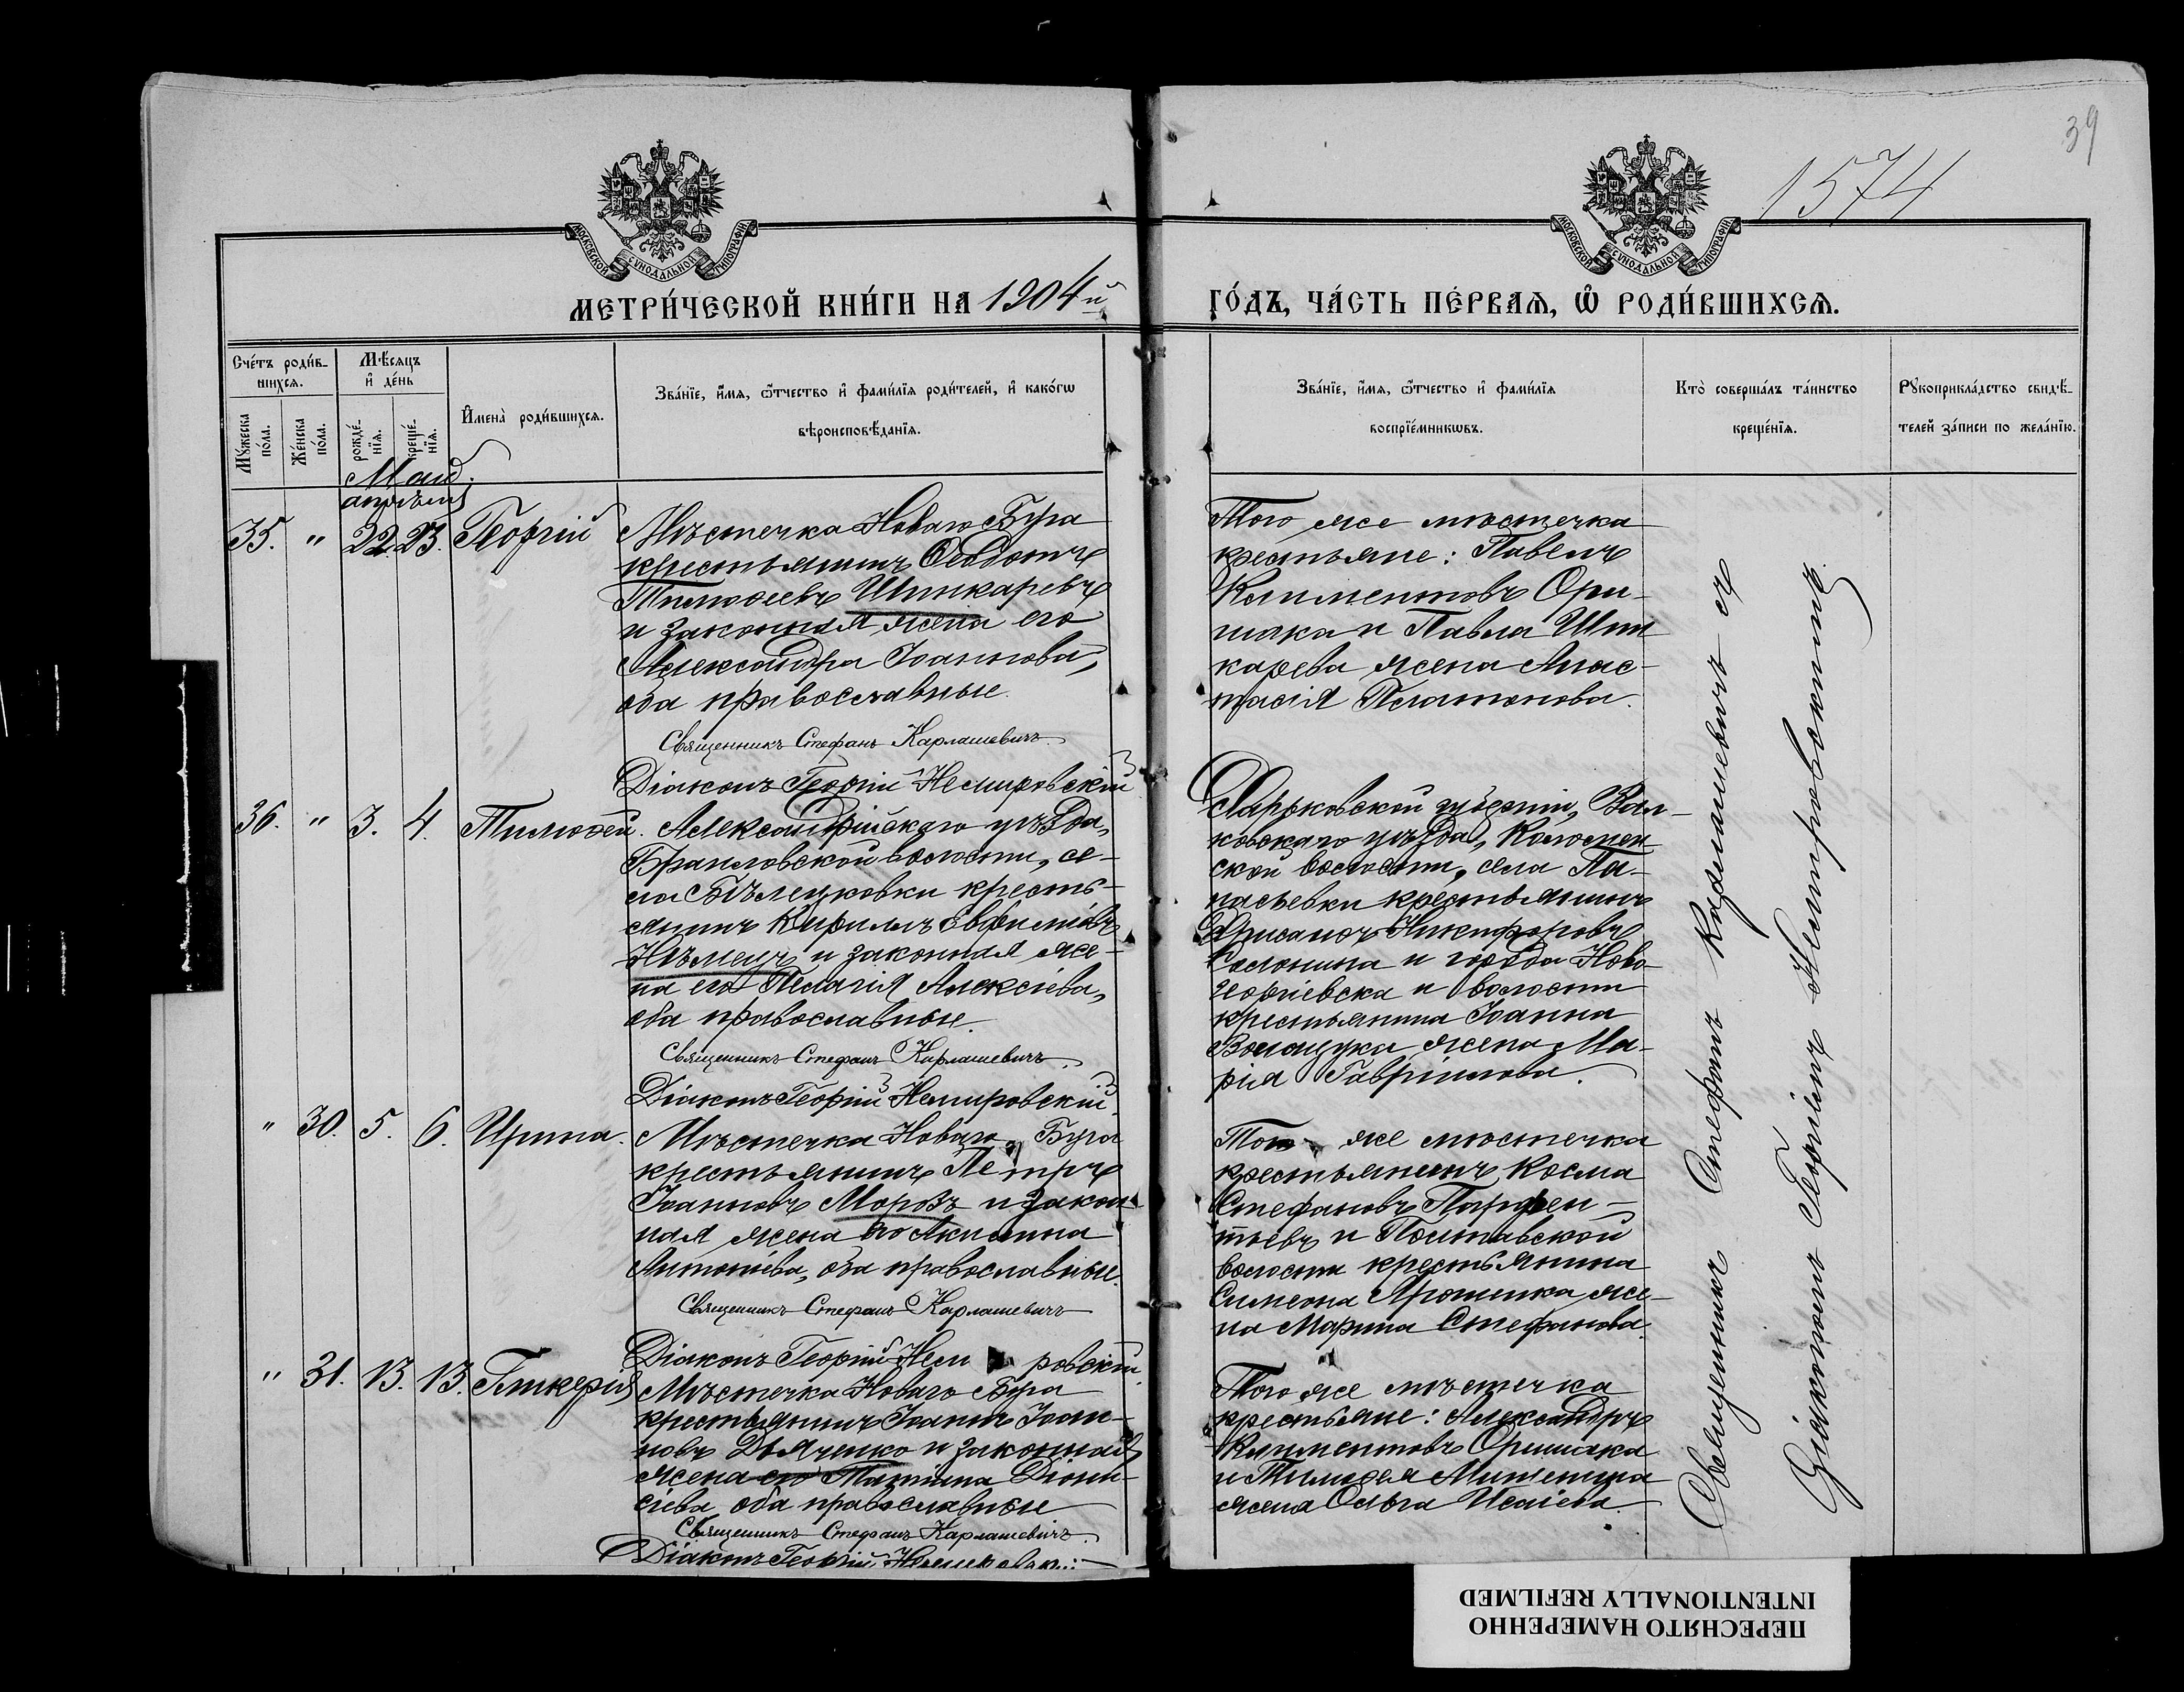 39
1574
МОСКОВСКОЙ СѴНОДАЛЬНОЙ ТИПОГРАФІИ
МОСКОВСКОЙ СѴНОДАЛЬНОЙ ТИПОГРАФІИ
МЕТРИ́ЧЕСКОЙ КНИ́ГИ НА 1904й
ГО́ДЪ, ЧА́СТЬ ПЕ́РВАѦ, Ѡ РОДИ́ВШИХСѦ.
Сче́тъ роди́в-
шихся.
Мꙋжеска по́ла.
Же́нска по́ла.
Мѣ́сяцъ
и де́нь
рожде́нїя.
креще́нїя.
Имена̀ роди́вшихся.
Зва́нїе, и́мя, ѻ́тчество и фами́лїя роди́телей, и како́гѡ
вѣроисповѣ́данїя.
Зва́нїе, и́мя, ѻ́тчество и фами́лїя
воспрїе́мникѡвъ.
Кто̀ соверша́лъ та́инство
креще́нїя.
Рꙋкоприкла́дство свидѣ́-
телей за́писи по жела́нїю.
Май
апрѣль
35. " 22. 23. Георгій
Мѣстечка Новаго Буга
крестьянинъ Ѳеодотъ
Тимоѳеевъ Шинкаревъ
и законная жена его
Александра Іоаннова,
оба православные.
Священникъ Стефанъ Карлашевичъ.
Діаконъ Георгій Немировскій
Того же мѣстечка
крестьяне: Павелъ
Климентовъ Ори-
шака и Павла Шин
карева жена Анас-
тасія Платонова.
36. " 3. 4. Тимоѳей.
Александрійскаго уѣзда,
Браиловской волости, се-
ла Бѣлецковки кресть-
янинъ Кирилъ Евфиміевъ
Нѣмецъ и законная же-
на его Пелагія Алексіева,
оба православные.
Священникъ Стефанъ Карлашевичъ.
Діаконъ Георгій Немировскій
Харьковской губерніи, Вал-
ковскаго уѣзда, Коломен
ской волости, села Па-
насьевки крестьянинъ
Хрисанѳъ Никифоровъ
Солонина и города Ново-
георгіевска и волости
крестьянина Іоанна
жена Ма-
рія Гавріилова.
" 30. 5. 6. Ирина.
Мѣстечка Новаго Буга
крестьянинъ Петръ
Іоанновъ Морозъ и закон
ная жена его Акилина
Антоніева, оба православные.
Священникъ Стефанъ Карлашевичъ
Діаконъ Георгій Немировскій.
Того же мѣстечка
крестьянинъ Косма
Стефановъ Парфен-
тьевъ и Полтавской
волости крестьянина
Симеона Ярошенка же-
на Марина Стефанова.
" 31. 13. 13. Гликерія
Мѣстечка Новаго Буга
крестьянинъ Іоаннъ Іоан-
новъ Дьяченко и законная
жена его Татіана Діони-
сіева оба православные
Священникъ Стефанъ Карлашевичъ.
Діаконъ Георгій
Того же мѣстечка
крестьяне: Александръ
Климентовъ Оришака
и Тимоѳея
жена Ольга Исаіева.
Священникъ Стефанъ Карлашевичъ съ
Діакономъ Георгіемъ Немировскимъ.
ПЕРЕСНЯТО НАМЕРЕННО
INTENTIONALLY REFILMED